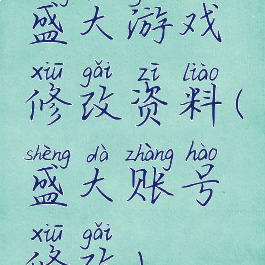 盛大游戏
xiū gǎi zī liào
修改资料(
shèng dà zhàng hào
盛大账号
xiū gǎi
修改)